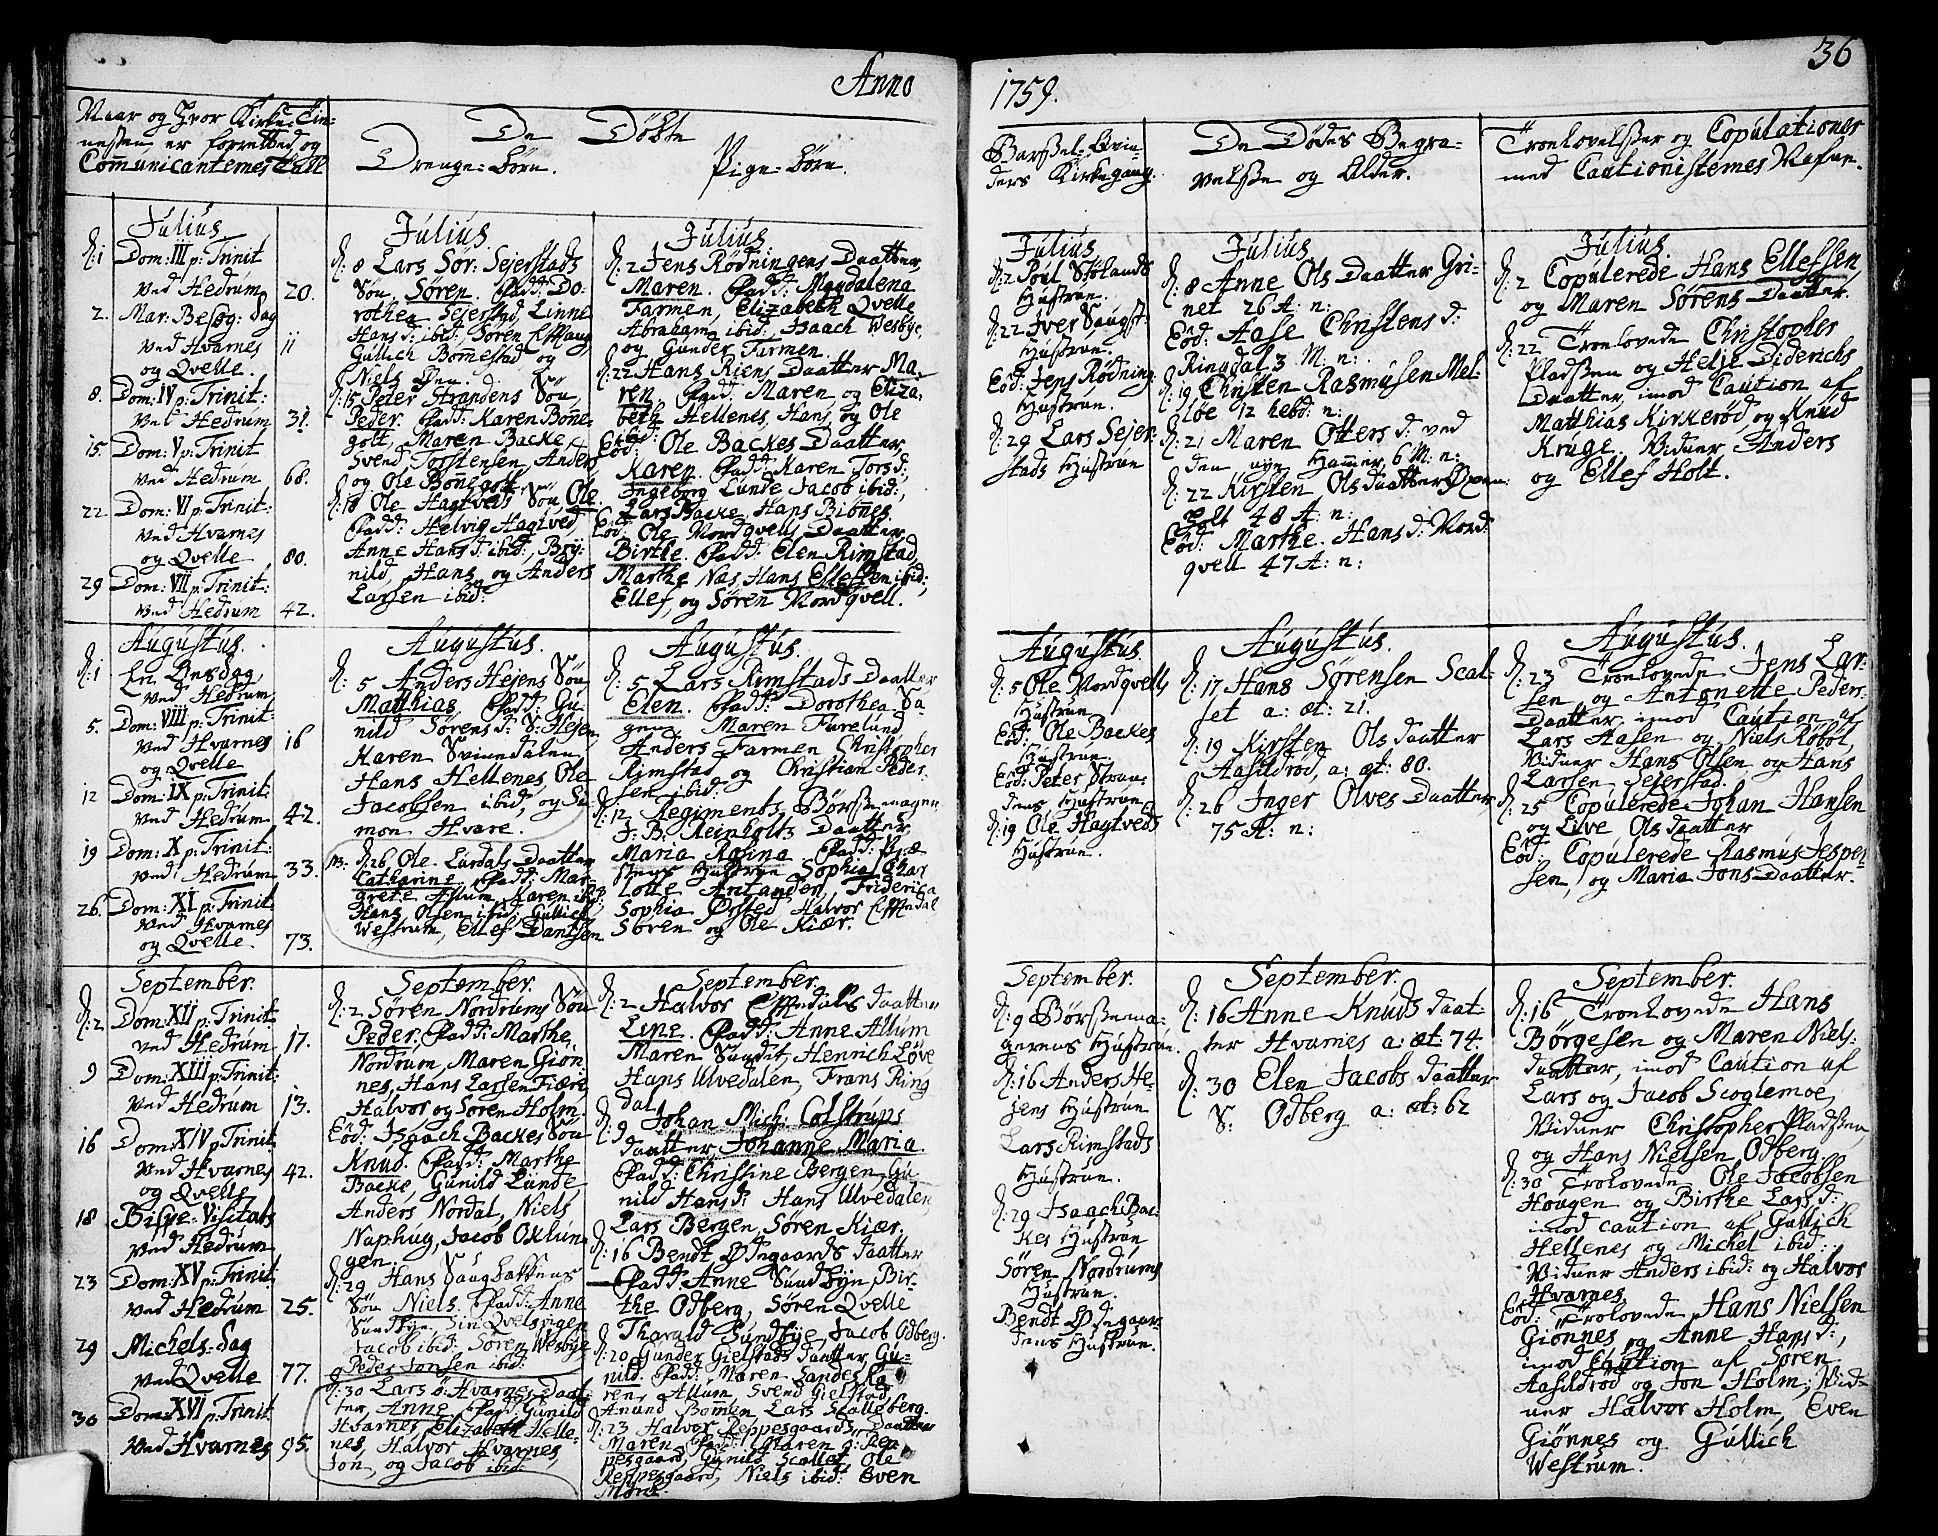 Anno
Naar og Hvor Kirke-Tie-
nesten er forrettet, og
Communicanternes Tall
De Døbte
Drenge-börn.
Pige-börn.
Julius.
d: 1 Dom: III p: Trinit
ved Hedrum 20.
2. Mar: Besøg: Dag
ved Hvarnes 11
og Qvelle.
8. Dom: IV p: Trinit:
ved Hedrum 31.
15. Dom: V p: Trinit
ved Hedrum 68.
22. Dom: VI p: Trinit:
ved Hvarnes
og Qvelle 80.
29 Dom: VII p: Trinit:
ved Hedrum 42.
Augustus.
d: 1 En Onsdag
ved Hedrum
5. Dom: VIII p: Trinit:
ved Hvarnes 16
og Qvelle
12 Dom: IX p: Trinit:
ved Hedrum 42.
19 Dom: X p: Trinit:
ved Hedrum 33.
26. Dom: XI p: Trinit
ved Hvarnes
og Qvelle. 73.
September.
d: 2 Dom: XII p: Trinit
ved Hedrum 17.
9 Dom: XIII p: Trinit:
ved Hedrum 13.
16 Dom: XIV p: Trinit:
ved Hvarnes 42.
og Qvelle
18 Bispe-Visitats
ved Hedrum
23 Dom: XV p: Trinit:
ved Hedrum 25.
29 Michels-Dag
ved Qvelle 77.
30 Dom: XVI p: Trinit
ved Hvarnes 95.
Julius.
d: 8 Lars Sør: Sejerstads
Søn, Søren. Fadd: Do-
rothea Sejerstad, Linne
Hans d: ibid: Søren
Gullich Bomestad, og
Niels Øen.
d: 15 Peter Strandens Søn,
Peder. Fadd: Karen Bone-
golt, Maren Backe,
Svend Torstensen, Anders
og Ole Bonegolt.
d: 18 Ole Hagtveds Søn Ole.
Fadd: Helvig Hagtved,
Anne Hans d: ibid:, Bry-
nild, Hans og Anders
Larsen ibid:
Augustus.
d: 5 Anders Hejens Søn
Matthias. Fadd: Gu-
nild Sørens d: S: Hejen,
Karen Svinndalen,
Hans Hellenes Ole
Jacobsen ibid, og Si-
mon Hvare.
NB. d: 26 Ole Lurdals Daatter
Catharine, Fadd: Mar-
grete Allum, Karen ibid:
Hans Olsen ibid: Gullich
Westrum, Ellef Dantsen
September.
d: 2 Søren Nordrums Søn
Peder. Fadd: Marthe
Nordrum, Maren Giøn-
nes, Hans Larsen Fiære,
Halvor og Søren Holm.
Eod: Isaach Backes Søn
Knud. Fadd: Marthe
Backe, Gunild Lunde
Anders Nordal, Niels
Naphug, Jacob Oklun-
gen.
d: 29 Hans Haugbakkens
Søn Niels. Fadd: Anne
Sundbye, Siri Qvelsvigen
Jacob ibid: Søren Wesbye
og Peder Jonsen ibid:
d: 30 Lars ø: Hvarnes Daat-
ter, Anne Fadd: Gunild
Hvarnes, Elizabeth Helle-
nes, Halvor Hvarnes,
Jon, og Jacob ibid:
Julius.
d: 2 Jens Rødningens Daatter,
Maren. Fadd: Magdalena
Farmen, Elizabeth Qvelle
Abraham ibid:, Isaach Wesbye,
og Gunder Farmen.
d: 22 Hans Riens Daatter Ma-
ren. Fadd: Maren og Eliza-
beth Hellenes, Hans, og Ole
ibid:
Eod: Ole Backes Daatter,
Karen. Fadd: Karen Tors d:
Ingeborg Lunde, Jacob ibid:,
Lars Backe, Hans Bibnes.
Eod: Ole Nordqvells Daatter,
Birthe. Fadd: Elen Rimstad,
Marthe Nas, Hans Ellefsen ibid;
Ellef, og Søren Nordqvell.
Augustus.
d: 5 Lars Rimstads Daatter
Elen. Fadd: Dorothea Va-
gnes, Maren Furelund
Anders Farmen Christopher
Rimstad, og Christian Peder-
sen ibid:
d: 12 Regiments Börssemager
J. B. Reinholts Daatter
Maria Rosina Fadd: Præ-
stens Hustrue Sophia Char-
lotte Antander, Friderica
Sophia Ørsted Halvor
Søren og Ole Kiær.
September.
d: 2 Halvor Daatter
Line. Fadd: Anne Allum
Maren Sundet, Henrich Løve
Hans Ulvedalen, Frans Ring
dal
d: 9 Johan Mich: Colstrups
daatter, Johanne Maria.
Fadd: Christine Bergen, Gu-
nild Hans d: Hans Ulvedalen,
Lars Bergen, Søren Kiær.
d: 16 Bendt Ødegaards Daatter
Fadd: Anne Sundbye, Bir-
the Odberg, Søren Qvelle
Tharald Sundbye, Jacob Odberg.
d: 20 Gunder Gielstads Daatter, Gu-
nild. Fadd: Maren Landes Ka-
ren Allum, Svend Gielstad,
Anund Bommen Lars Skalleberg.
d: 23 Halvor Reppesgaards Daatter
Maren. Fadd: Maren Rep-
pesgaard, Gunild Scallet, Ole
Reppesgaard, Niels ibid: Even
Moné.
1759.
36
Barssel-Qvin-
ders Kirkegang.
De Dødes Begra-
velsse og Alder.
Troelovelsser og Copulationer
med Cautionisternes Nafne.
Julius.
d: 2 Poul Stølands
Hustrue.
d: 22 Iver Haugst:
Hustrue.
Eod: Jens Rødning:
Hustrue.
d: 29 Lars Sejer-
stads Hustrue
Augustus.
d: 5 Ole Nordqvells
Hustrue
Eod: Ole Backes
Hustrue.
Eod: Peter Stran-
dens Hustrue
d: 19 Ole Hagtveds
Hustrue.
September.
d: 9 Børssema-
gerens Hustrue.
d: 16 Anders He-
jens Hustrue
Lars Rimstads
Hustrue.
d: 29 Isaach Bac-
kes Hustrue
Søren Nordrums
Hustrue.
Bendt Ødegaar-
dens Hustrue.
Julius.
d: 8 Anne Ols Daatter Gri-
net 26 A: n:
Eod: Aase Christens d:
Ringdal 3 M: n:
d: 19 Christen Rasmusen Mel-
løe 12 hebd: n:
d: 21 Maren Otters d: ved
den nye Hammer 6 M: n:
d: 22 Kirsten Ols daatter Oxen-
golt 48 A: n:
Eod: Marthe Hans d: Nord-
qvell 47 A: n:
Augustus.
d: 17 Hans Sørensen Scal-
let a: æt: 21.
d: 19 Kirsten Ols daatter
Aasildrød, a: æt: 80.
d: 26 Inger Olves Daatter,
75 A: n:
September.
d: 16 Anne Knuds daat-
ter Hvarnes a: æt: 74.
d: 30 Elen Jacobs daatter
S: Odberg a: æt: 62
Julius.
d: 2 Copulerede Hans Ellefsen,
og Maren Sørens Daatter.
d: 22 Troelovede Christopher
Pladssen og Helje Diderichs
Daatter, imod Caution af
Matthias Kirkerød, og Knud
Kruge. Vidner Anders
og Ellef Holt.
Augustus.
d: 23 Troelovede Jens Lar-
sen og Antonette Peders
Daatter, imod Caution af
Lars Aasen og Niels Robøl,
Vidner Hans Olsen og Hans
Larsen, Sejerstad.
d: 25 Copulerede Johan Hansen
og Live Ols daatter
Eod: Copulerede Rasmus Jesper-
sen, og Maria Jons Daatter.
September.
d: 16 Troelovede Hans
Börgesen og Maren Niels-
daatter, imod Caution af
Lars og Jacob Scoglemoe,
Vidner Christopher Pladssen,
og Hans Nielsen Odberg.
d: 30 Trolovede Ole Jacobsen
Hougen og Birthe Lars d:
imod caution af Gullich
Hellenes og Michel ibid:
Vidner Anders ibid: og Halvor
Hvarnes
Eod: Trolovede Hans Nielsen
Giønnes og Anne Hans d:,
imod Caution af Søren
Aasildrød og Jon Holm; Vid-
ner Halvor Holm, Even
Giønnes og Gullich
Westrum.